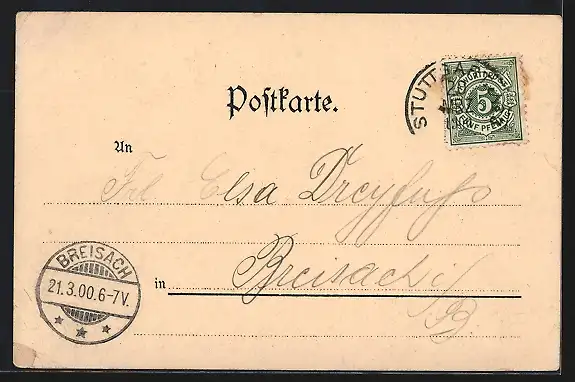 Postkarte.
STUTTGA
WÜRTTBG.
5
FÜNF PFENNIG
An
Frl Elsa Dreyfuß
in Breisach i/
B.
BREISACH
21.3.00.6-7V.